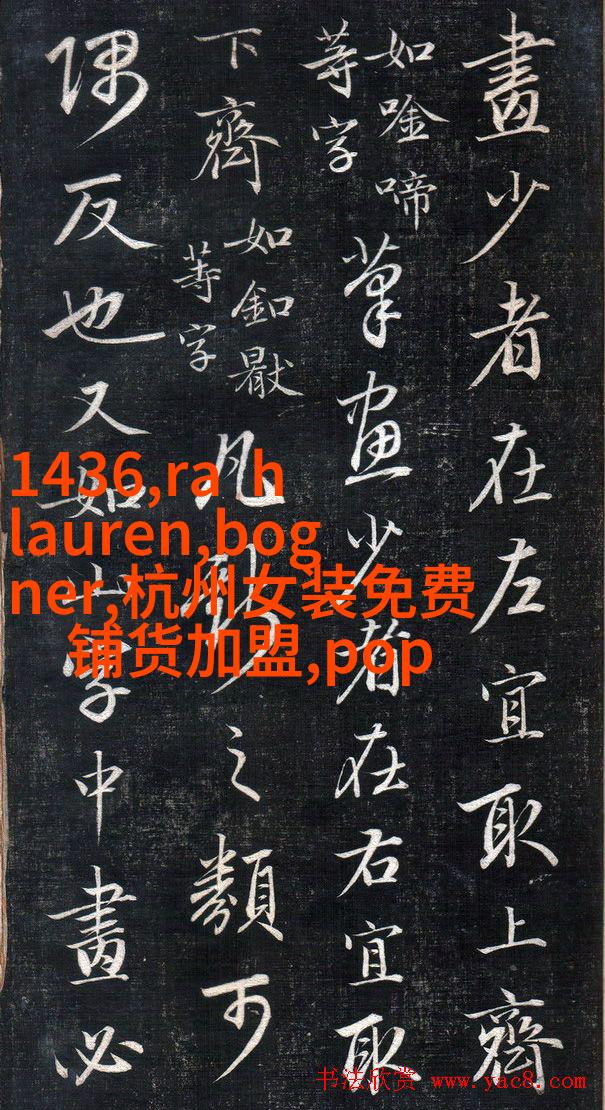 畫少者在左宜取上齊
如唫啼
等字
筆画少者在右宜取
下齊
如釦
等字
凡之類可
隅反也又如山字中畫必
1436,ra h
lauren,bog
ner,杭州女装免费
铺货加盟,pop
书法欣赏 www.yac8.com